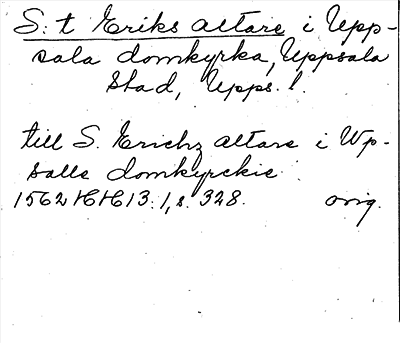 S:t Eriks altare i Upp-
sala domkyrka, Uppsala
stad, Upps. l.
till S. Erichz altare i Wp-
salle domkyrckie
1562 HH 13:1, s. 328. orig.